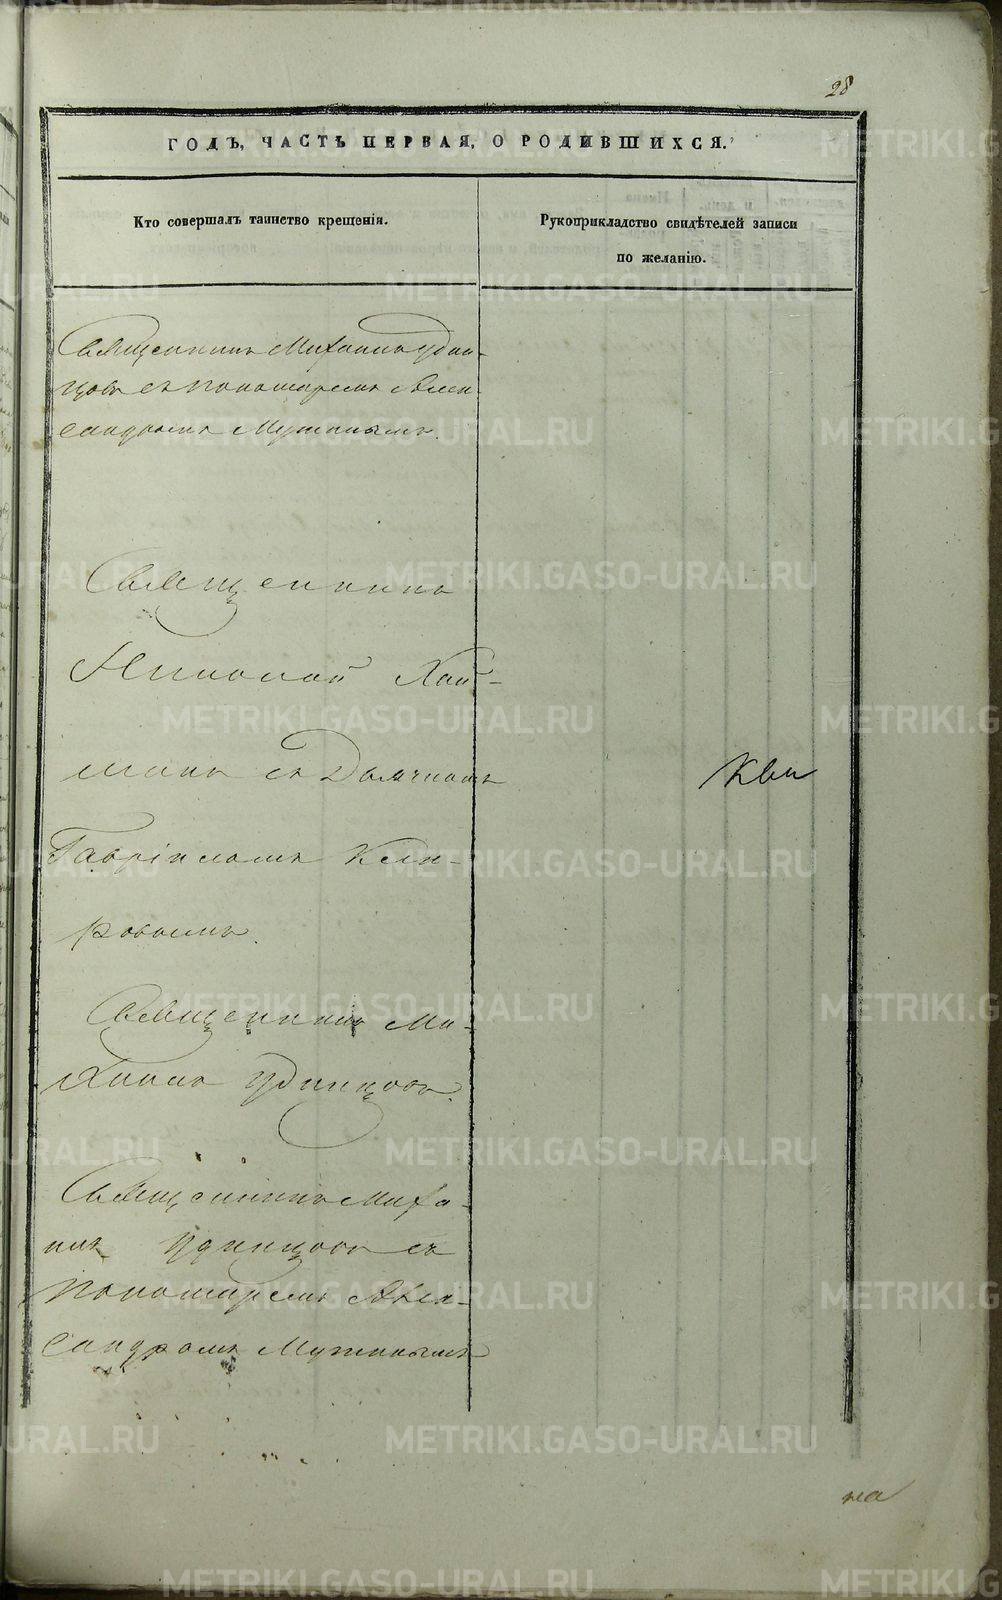 28
ГОДЪ, ЧАСТЬ ПЕРВАЯ, О РОДИВШИХСЯ.
Кто совершалъ таинство крещенія.
Рукоприкладство свидѣтелей записи
по желанію.
Священникъ Михаилъ Удин-
цовъ съ пономаремъ Алек-
сандромъ Мутинымъ.
Священникъ
Николай Хай-
минъ съ Дьячкомъ
Гавріиломъ Кели-
ровымъ.
Священникъ Ми-
хаилъ Удинцовъ.
Священникъ Миха-
илъ Удинцовъ съ
пономаремъ Алек-
сандромъ Мутинымъ
METRIKI.GASO-URAL.RU